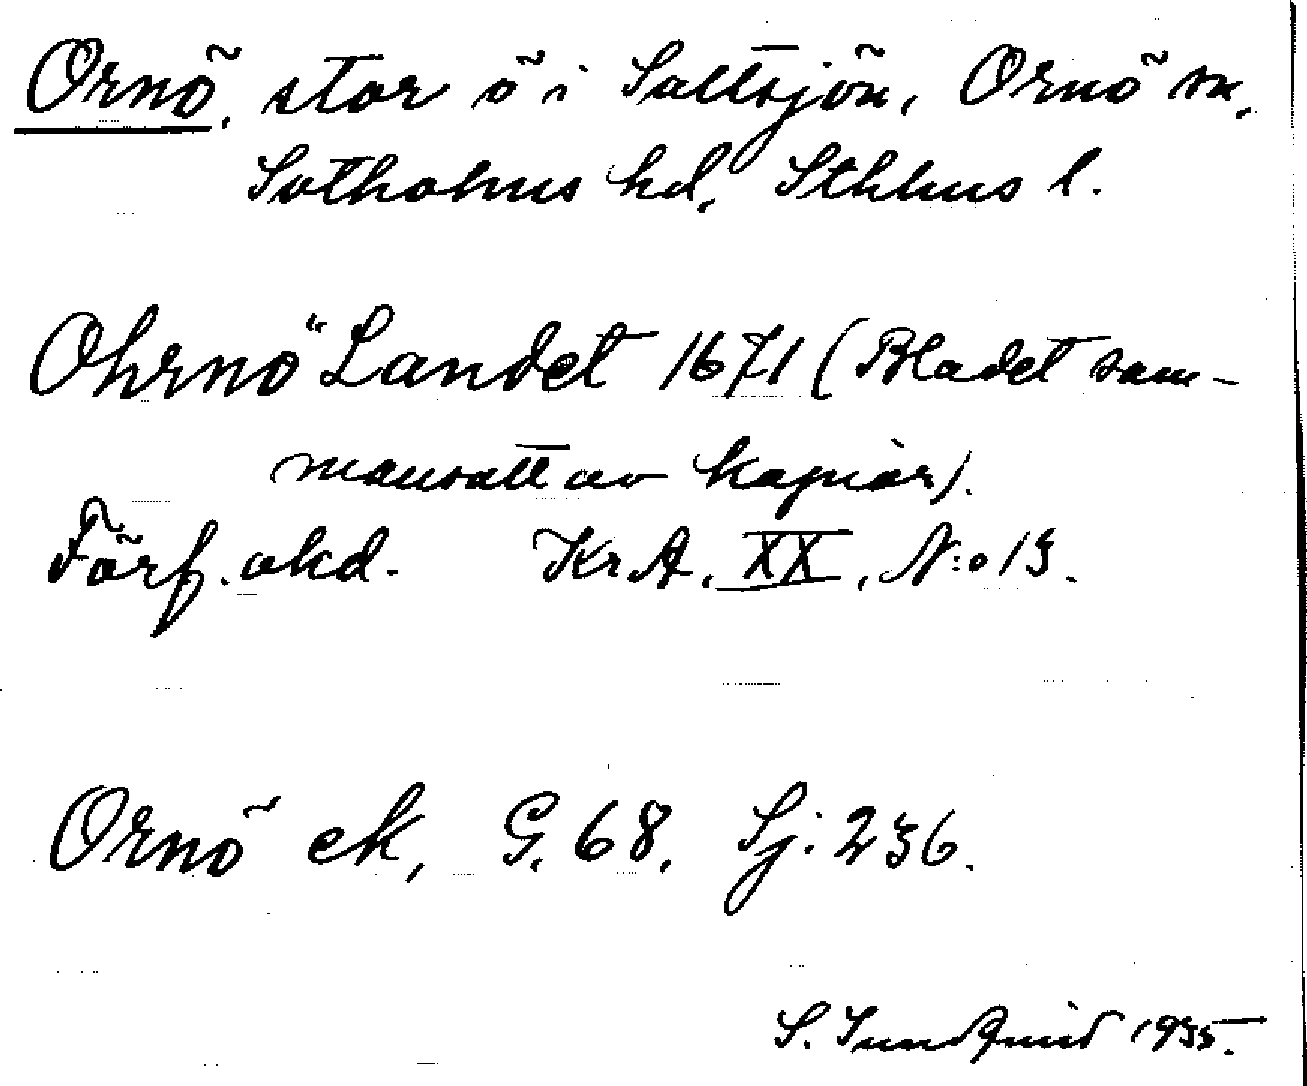 Ornö, stor ö i Saltsjön, Ornö sn,
Sotholms hd, Sthlms l.
Ohrnö Landet 1671 (Bladet sam-
mansatt av kopior).
Förf. okd. Kr. A. XX, N:o 13.
Ornö ek, G. 68. Sj: 236.
S. Sundquist 1935.